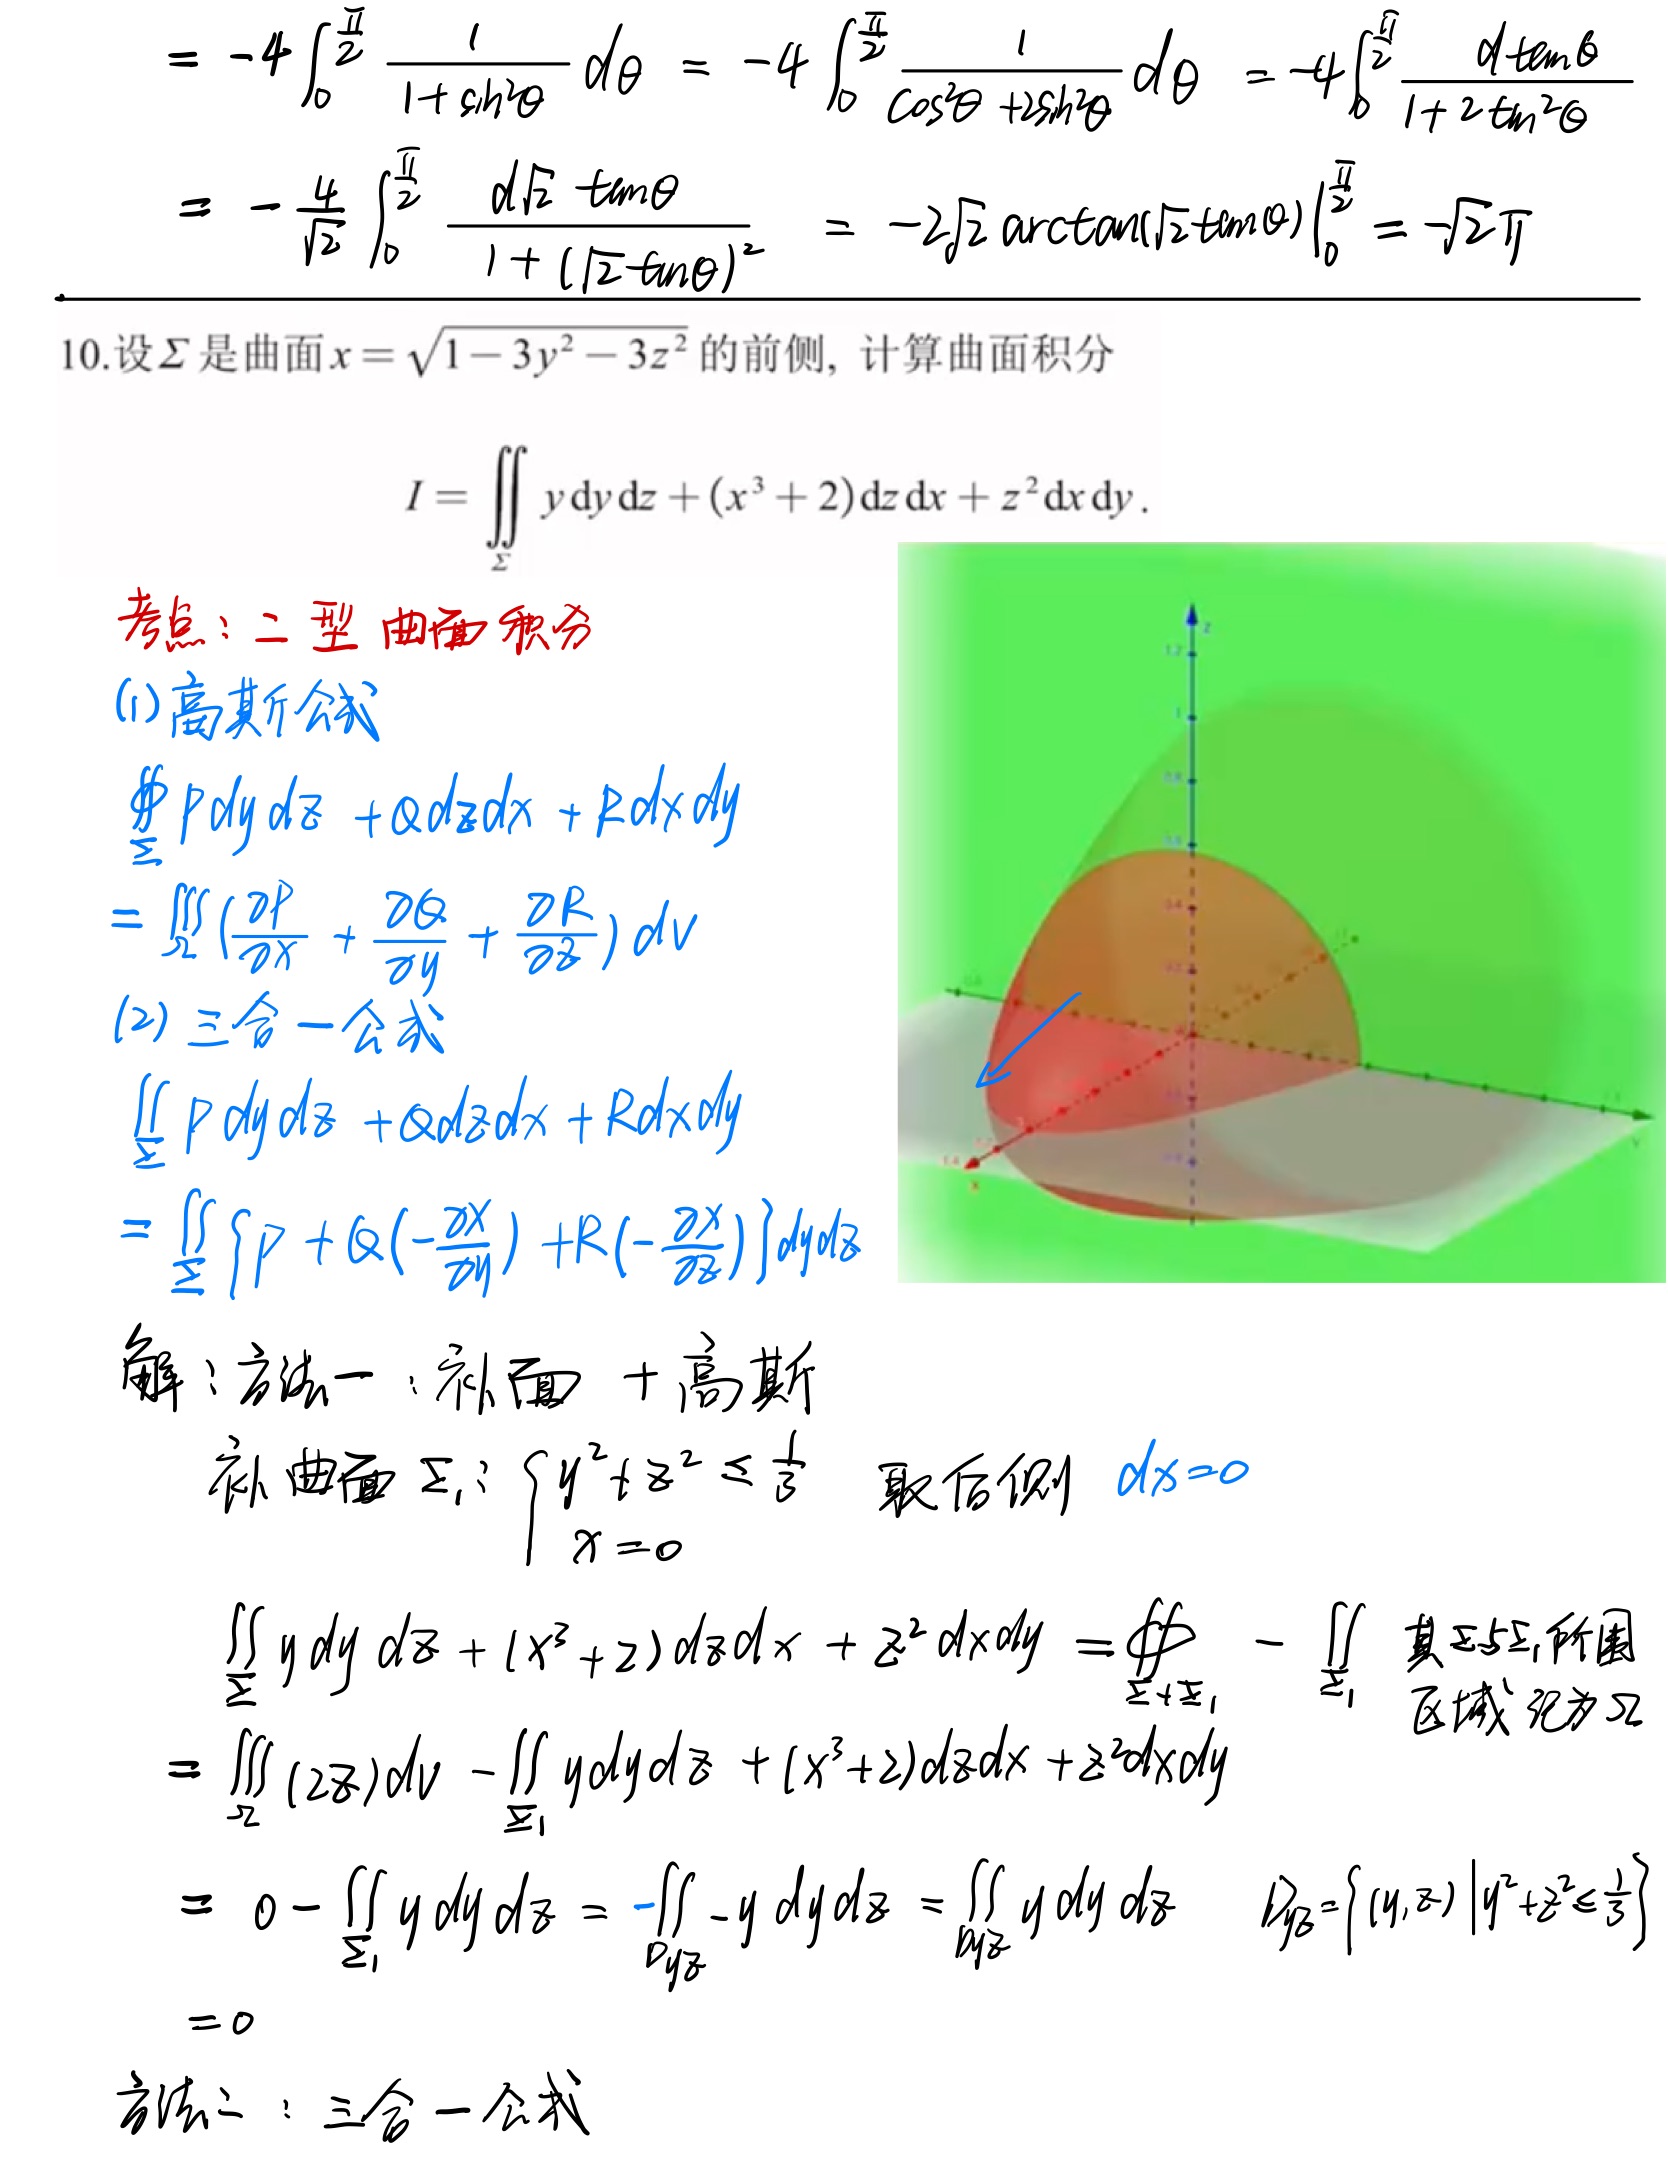 = -4∫₀^{π/2} 1/(1+sin²θ) dθ = -4∫₀^{π/2} 1/(cos²θ+2sin²θ) dθ = -4∫₀^{π/2} dtanθ/(1+2tan²θ)
= -4/√2 ∫₀^{π/2} d√2 tanθ/(1+(√2tanθ)²) = -2√2 arctan(√2tanθ)|₀^{π/2} = -√2π
10.设Σ是曲面x=√(1-3y²-3z²)的前侧, 计算曲面积分
I=∬_Σ ydydz+(x³+2)dzdx+z²dxdy.
考点:二型曲面积分
(1)高斯公式
∯_Σ Pdydz+Qdzdx+Rdxdy
=∭_Ω(∂P/∂x+∂Q/∂y+∂R/∂z)dv
(2)三合一公式
∬_Σ Pdydz+Qdzdx+Rdxdy
=∬_Σ{P+Q(-∂x/∂y)+R(-∂x/∂z)}dydz
解:方法一:补面+高斯
补曲面Σ₁:{y²+z²≤1/3 x=0 取后侧 dx=0
∬_Σ ydydz+(x³+2)dzdx+z²dxdy=∯_{Σ+Σ₁} - ∬_{Σ₁} 其Σ与Σ₁所围
区域记为Ω
=∭_Ω(2z)dv-∬_{Σ₁} ydydz+(x³+2)dzdx+z²dxdy
=0-∬_{Σ₁} ydydz=-∬_{Dyz} -ydydz=∬_{Dyz} ydydz Dyz={(y,z)|y²+z²≤1/3}
=0
方法二:三合一公式